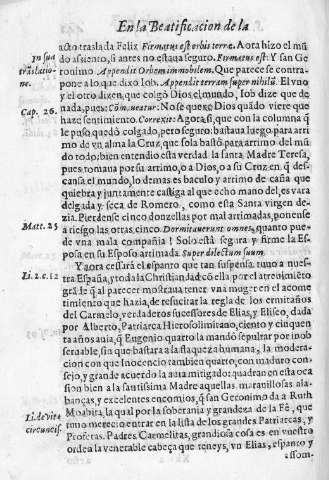 En la Beatificacion de la
acto traslada Felix Firmatus est orbis terræ. Aora hizo el mũ
In sua
do assiento, si antes no estaua seguro. Firmatus est: Y san Ge
traslatio-
ronimo. Appendit Orbem immobilem. Que parece se contrapo
ne.
ne a lo que dixo Iob. Appendit terram super nihilũ. El vno
y el otro dizen, que colgò Dios el mundo, Iob dize que de
Cap. 26.
nada, pues: Cõmoueatur: No se quexe Dios quãdo viere que
haze sentimiento. Correxit: Agora si, que con la columna q̃
le puso quedò colgado, pero seguro: bastaua luego para arri
mo de vn alma la Cruz, que sola bastò para arrimo del mũ
do todo; bien entendio esta verdad la santa Madre Teresa,
pues tomaua por su arrimo, o a Dios, o a su Cruz en q̃ des-
cansa el mundo, lo demas es baculo y arrimo de caña que
quiebra y juntamente castiga al que echo mano del, es vara
delgada y seca de Romero, como esta Santa virgen de-
zia. Pierdense cinco donzellas por mal arrimadas, ponense
Matt. 25
a riesgo las otras cinco. Dormitauerunt omnes, quanto pue-
de vna mala compañia! Solo està segura y firme la Es-
posa en su Esposo arrimada Super dilectum suum.
Y aora cessarà el espanto que tan suspensa tuuo a nues-
Li. 2. c. 12
tra España, y toda la Christiandad: cõ ella por el atreuimiẽto
grãde q̃ al parecer mostraua tener vna muger en el acome
timiento que hazia, de resucitar la regla de los ermitaños
del Carmelo, verdaderos successores de Elias, y Eliseo, dada
por Alberto, Patriarca Hierosolimitano, ciento y cinquen
ta años auia, q̃ Eugenio quarto la mandò sepultar por inob
seruable, sin que bastara a la flaqueza humana, la modera-
cion con que Inocencio tambien quarto, con maduro con-
sejo, y grande acuerdo la auia mitigado: quadran en esta oca
sion bien a la santissima Madre aquellas marauillosas ala-
banças, y excelentes encomios, q̃ san Geronimo da a Ruth
Li. de vita
Moabita, la qual por la soberania y grandeza de la Fè, que
circuncis.
tuuo merecio entrar en la lista de los grandes Patriarcas, y
Profetas. Padres Carmelitas, grandiosa cosa es en vuestro
orden la venerable cabeça que teneys, vn Elias, espanto y
assom-